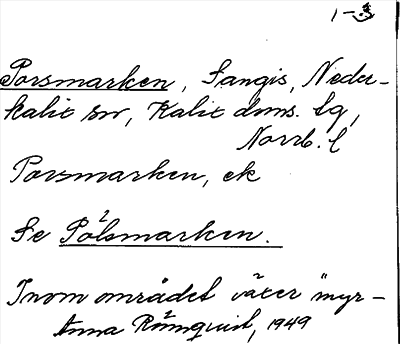 1-3
Porsmarken, Sangis, Neder-
kalix sn, Kalix dms. lg,
Norrb. l
Porsmarken, ek
Se Pålsmarken.
Inom området växer myr-
Anna Rönnquist, 1949